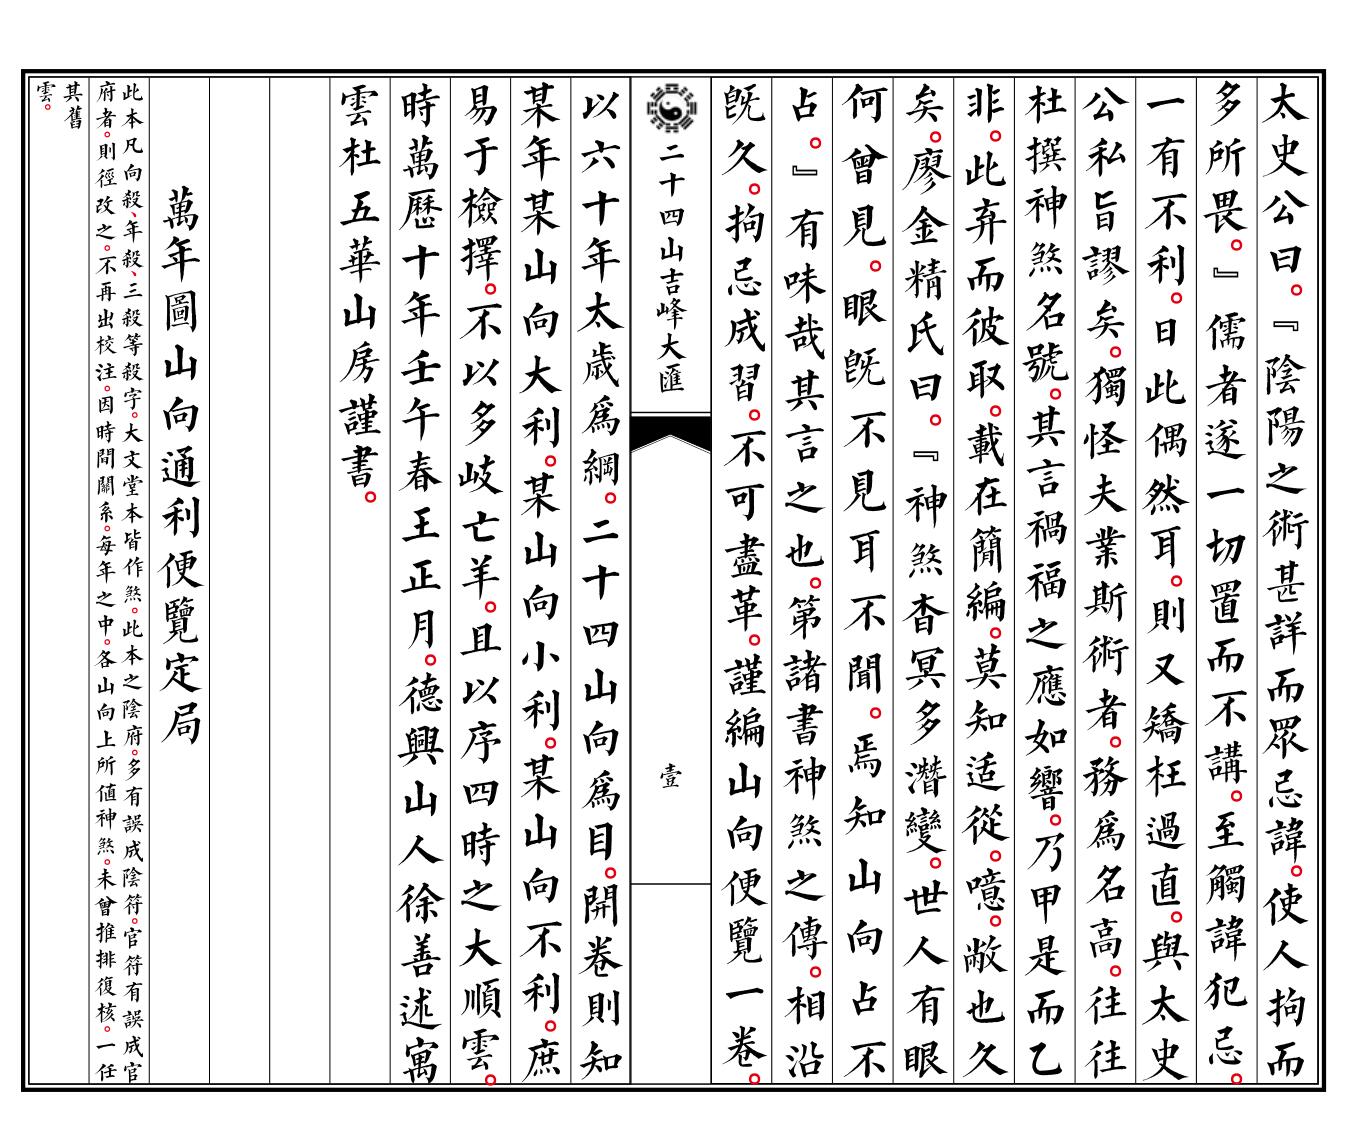 太史公曰。『陰陽之術甚詳而眾忌諱。使人拘而
多所畏。』儒者遂一切置而不講。至觸諱犯忌。
一有不利。曰此偶然耳。則又矯枉過直。與太史
公私旨謬矣。獨怪夫業斯術者。務爲名高。往往
杜撰神煞名號。其言禍福之應如響。乃甲是而乙
非。此弃而彼取。載在簡編。莫知适從。噫。敝也久
矣。廖金精氏曰。『神煞杳冥多潛變。世人有眼
何曾見。眼旣不見耳不聞。焉知山向占不
占。』有味哉其言之也。第諸書神煞之傳。相沿
旣久。拘忌成習。不可盡革。謹編山向便覽一卷。
二十四山吉峰大匯
壹
以六十年太歲爲綱。二十四山向爲目。開卷則知
某年某山向大利。某山向小利。某山向不利。庶
易于檢擇。不以多岐亡羊。且以序四時之大順雲。
時萬歷十年壬午春王正月。德興山人徐善述寓
雲杜五華山房謹書。
萬年圖山向通利便覽定局
此本凡向殺、年殺、三殺等殺字。大文堂本皆作煞。此本之陰府。多有誤成陰符。官符有誤成官
府者。則徑改之。不再出校注。因時間關系。每年之中。各山向上所值神煞。未曾推排復核。一任
其舊
雲。